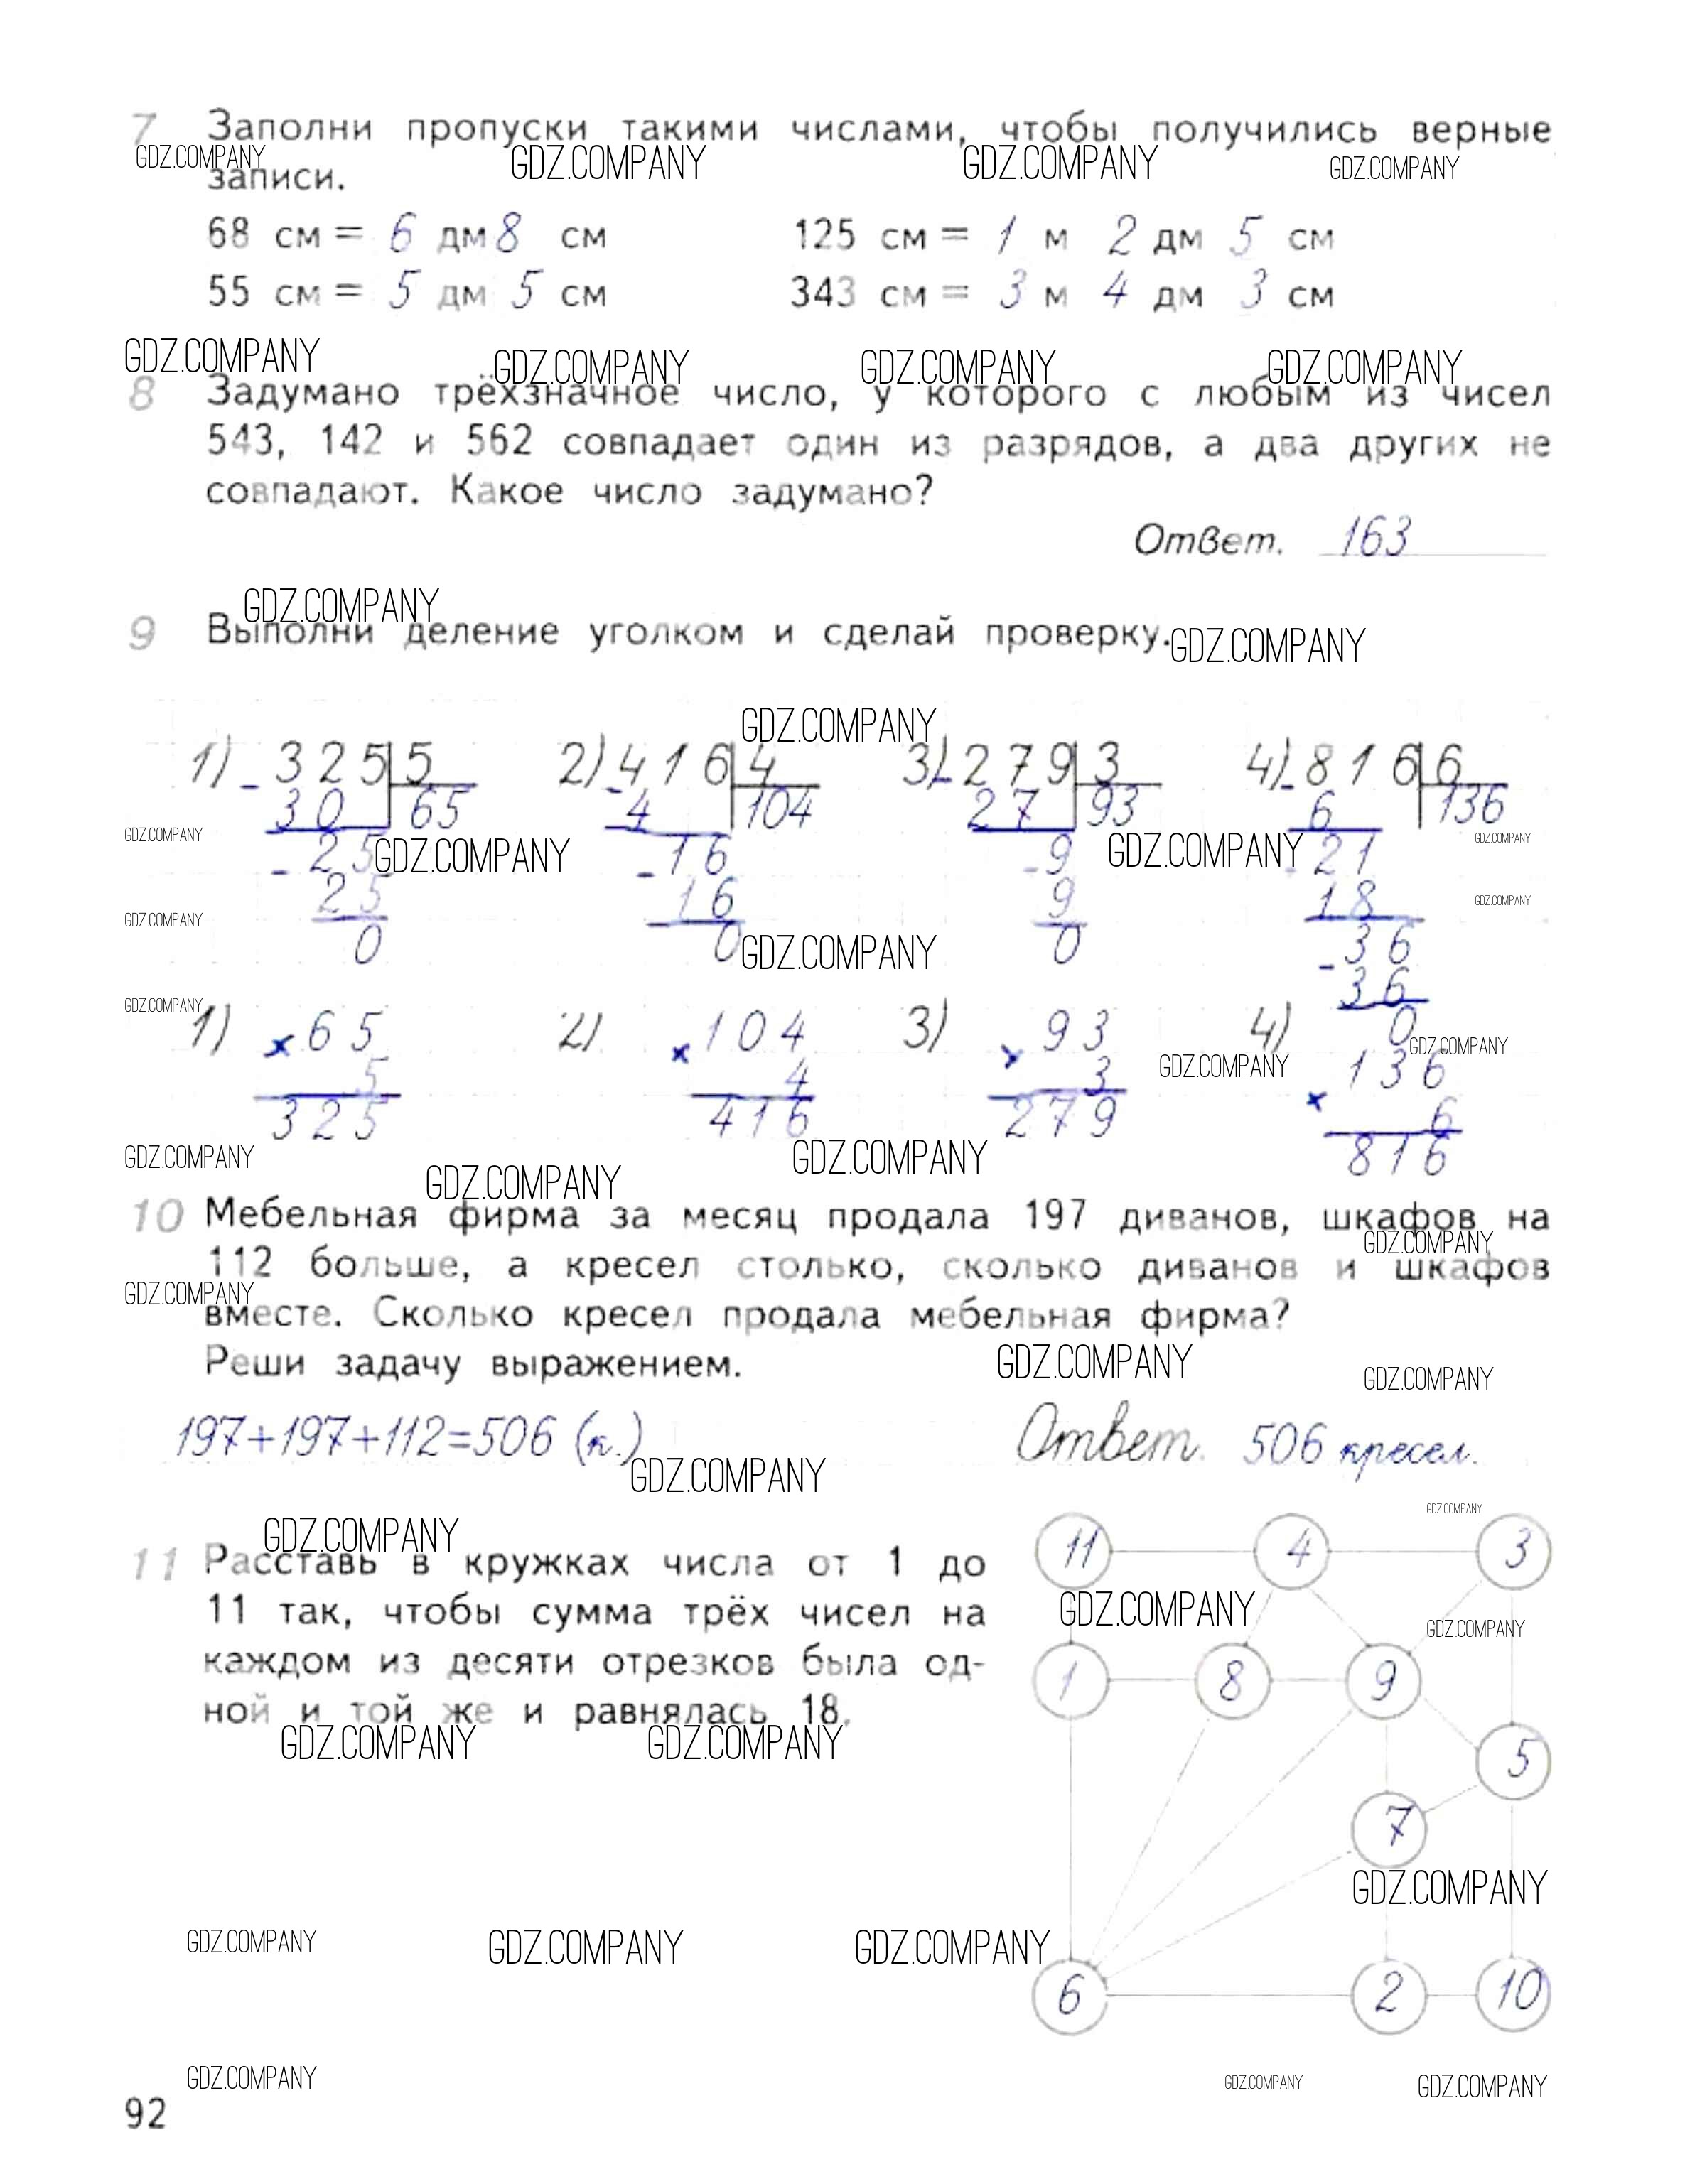 7 Заполни пропуски такими числами, чтобы получились верные
GDZ.COMPANY GDZ.COMPANY GDZ.COMPANY GDZ.COMPANY
записи.
68 см = 6 дм 8 см 125 см = 1 м 2 дм 5 см
55 см = 5 дм 5 см 343 см = 3 м 4 дм 3 см
GDZ.COMPANY GDZ.COMPANY GDZ.COMPANY GDZ.COMPANY
8 Задумано трёхзначное число, у которого с любым из чисел
543, 142 и 562 совпадает один из разрядов, а два других не
совпадают. Какое число задумано?
Ответ. 163
GDZ.COMPANY
9 Выполни деление уголком и сделай проверку.
GDZ.COMPANY
GDZ.COMPANY
1) - 325 5 2) - 416 4 3) - 279 3 4) - 816 6
30 65 4 104 27 93 6 136
GDZ.COMPANY GDZ.COMPANY GDZ.COMPANY GDZ.COMPANY
- 25 - 16 - 9 - 21
25 16 9 18
GDZ.COMPANY GDZ.COMPANY
0 0 0 - 36
GDZ.COMPANY
36
GDZ.COMPANY
1) × 65 2) × 104 3) × 93 4) 0
GDZ.COMPANY GDZ.COMPANY
5 4 3 × 136
325 416 279 6
816
GDZ.COMPANY GDZ.COMPANY GDZ.COMPANY
10 Мебельная фирма за месяц продала 197 диванов, шкафов на
GDZ.COMPANY
112 больше, а кресел столько, сколько диванов и шкафов
GDZ.COMPANY
вместе. Сколько кресел продала мебельная фирма?
Реши задачу выражением.
GDZ.COMPANY GDZ.COMPANY
197+197+112=506 (к.) Ответ. 506 кресел.
GDZ.COMPANY
GDZ.COMPANY GDZ.COMPANY
11 Расставь в кружках числа от 1 до
11 так, чтобы сумма трёх чисел на
каждом из десяти отрезков была од-
ной и той же и равнялась 18.
GDZ.COMPANY GDZ.COMPANY
11 4 3
GDZ.COMPANY GDZ.COMPANY
1 8 9
5
7
GDZ.COMPANY
GDZ.COMPANY GDZ.COMPANY GDZ.COMPANY
6 2 10
GDZ.COMPANY GDZ.COMPANY GDZ.COMPANY
92